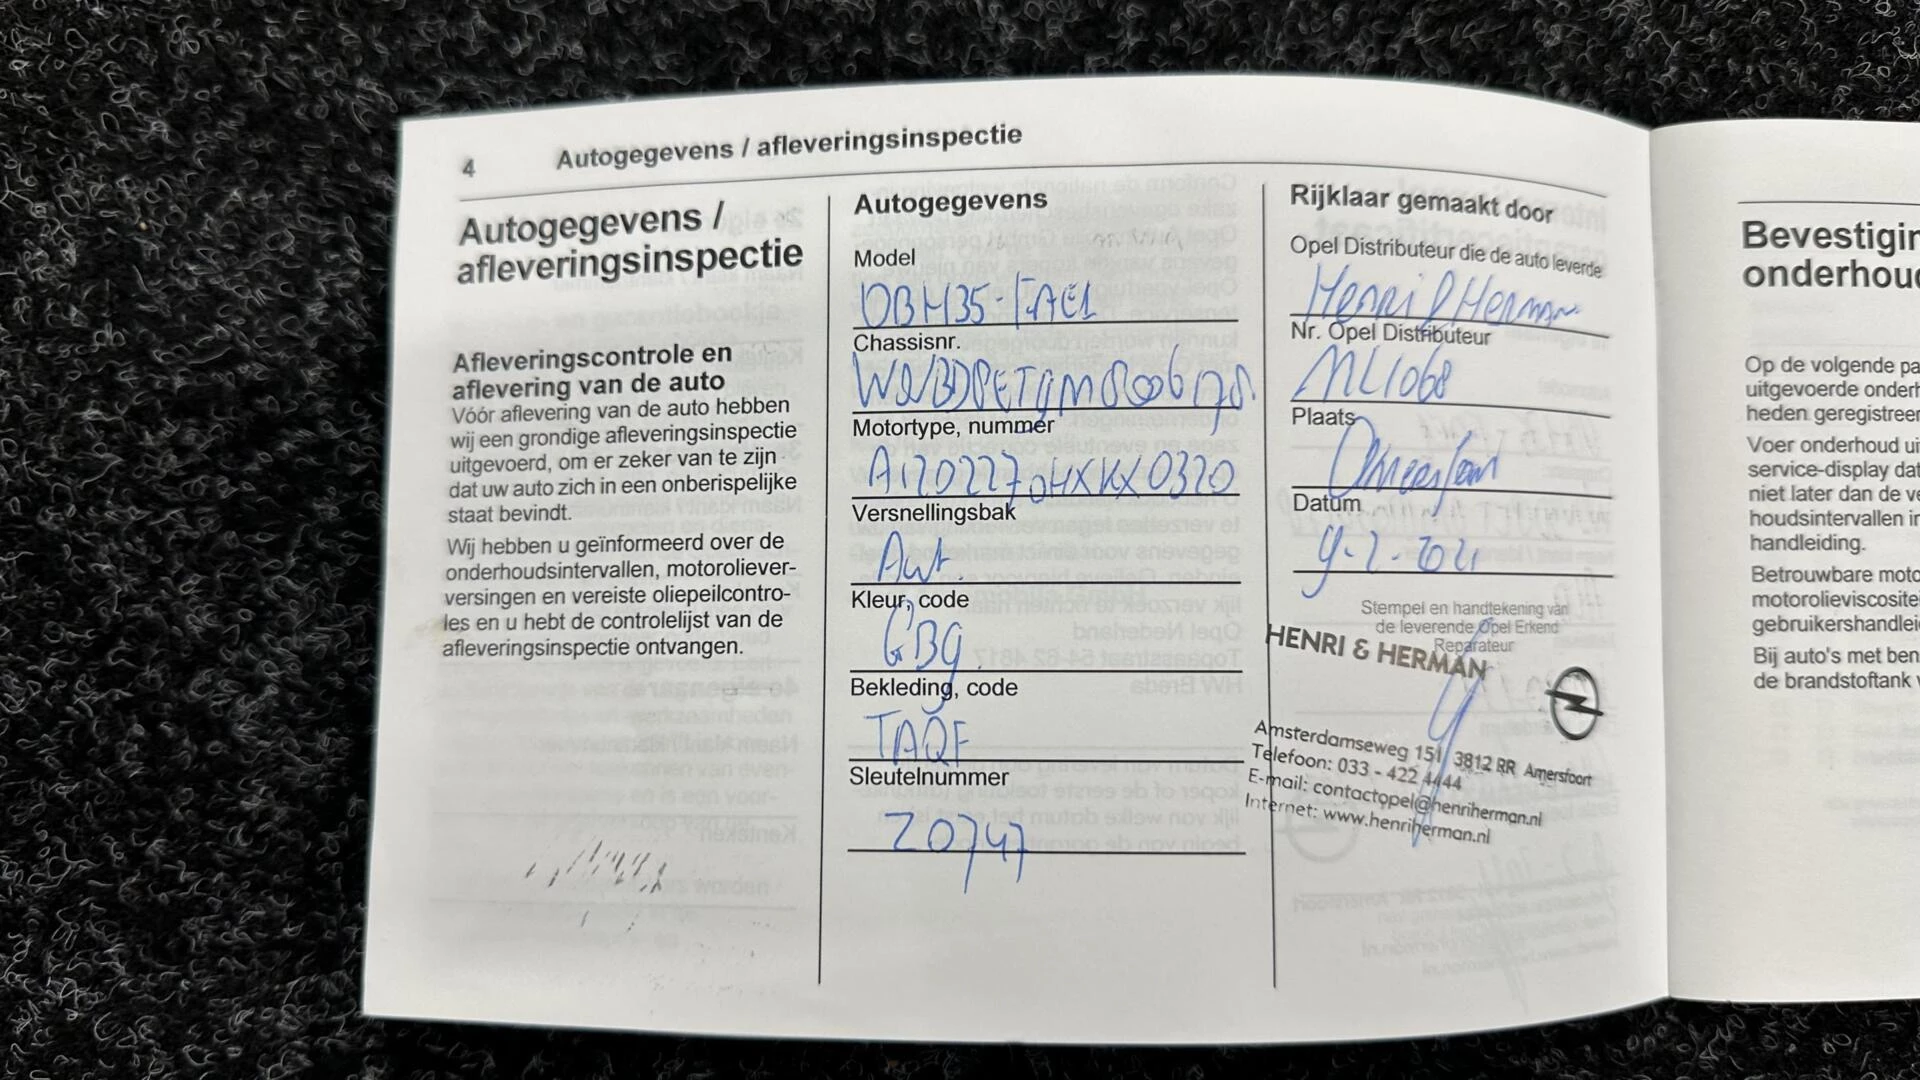 4
Autogegevens / afleveringsinspectie
Autogegevens /
afleveringsinspectie
Afleveringscontrole en
aflevering van de auto
Vóór aflevering van de auto hebben
wij een grondige afleveringsinspectie
uitgevoerd, om er zeker van te zijn
dat uw auto zich in een onberispelijke
staat bevindt.
Wij hebben u geïnformeerd over de
onderhoudsintervallen, motoroliever-
versingen en vereiste oliepeilcontro-
les en u hebt de controlelijst van de
afleveringsinspectie ontvangen.
Autogegevens
Model
Chassisnr.
Motortype, nummer
Versnellingsbak
Aut.
Kleur, code
GBg.
Bekleding, code
TAQF
Sleutelnummer
Z0747
Rijklaar gemaakt door
Opel Distributeur die de auto leverde
Henri & Herman
Nr. Opel Distributeur
NL1068
Plaats
Amersfoort
Datum
9-2-2021
Stempel en handtekening van
de leverende Opel Erkend
Reparateur
HENRI & HERMAN
Amsterdamseweg 151, 3812 RR Amersfoort
Telefoon: 033 - 422 4444
E-mail: contactopel@henriherman.nl
Internet: www.henriherman.nl
Bevestigin
onderhoud
Op de volgende pa
uitgevoerde onderh
heden geregistreer
Voer onderhoud uit
service-display dat
niet later dan de ve
houdsintervallen in
handleiding.
Betrouwbare moto
motorolieviscositei
gebruikershandlei
Bij auto's met ben
de brandstoftank v